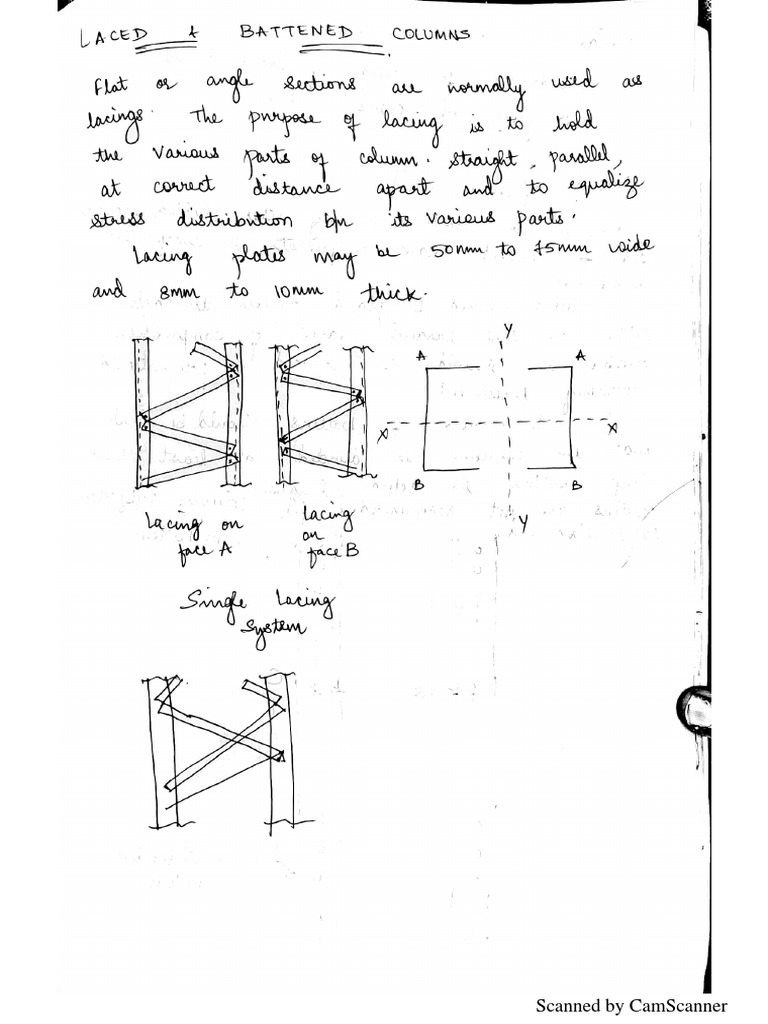 LACED & BATTENED COLUMNS
Flat or angle sections are normally used as
lacings. The purpose of lacing is to hold
the various parts of column. straight, parallel,
at correct distance apart and to equalize
stress distribution b/n its various parts.
Lacing plates may be 50mm to 75mm wide
and 8mm to 10mm thick.
Y
A A
X X
B B
Y
Lacing on
face A
Lacing
on
face B
Single Lacing
System
Scanned by CamScanner